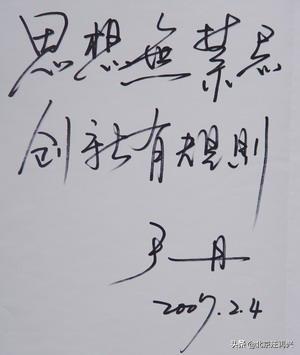 思想無禁忌
创新有規則
于丹
2007.2.4
头条 @北京汪再兴